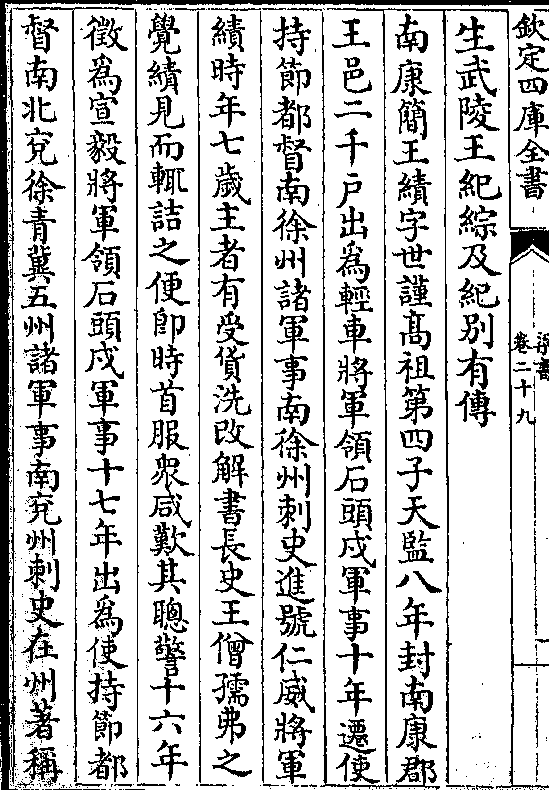 欽定四庫全書
梁書
卷二十九
生武陵王紀綜及紀別有傳
南康簡王績字世謹髙祖第四子天監八年封南康郡
王邑二千戸出為輕車將軍領石頭戍軍事十年遷使
持節都督南徐州諸軍事南徐州刺史進號仁威將軍
績時年七歲主者有受貨洗改解書長史王僧孺弗之
覺績見而輒詰之便即時首服衆咸歎其聰警十六年
徵為宣毅將軍領石頭戍軍事十七年出為使持節都
督南北兗徐青冀五州諸軍事南兗州刺史在州著稱